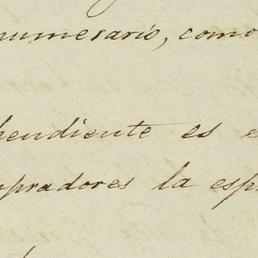 numerario, como
pendiente es e
mpradores la esp